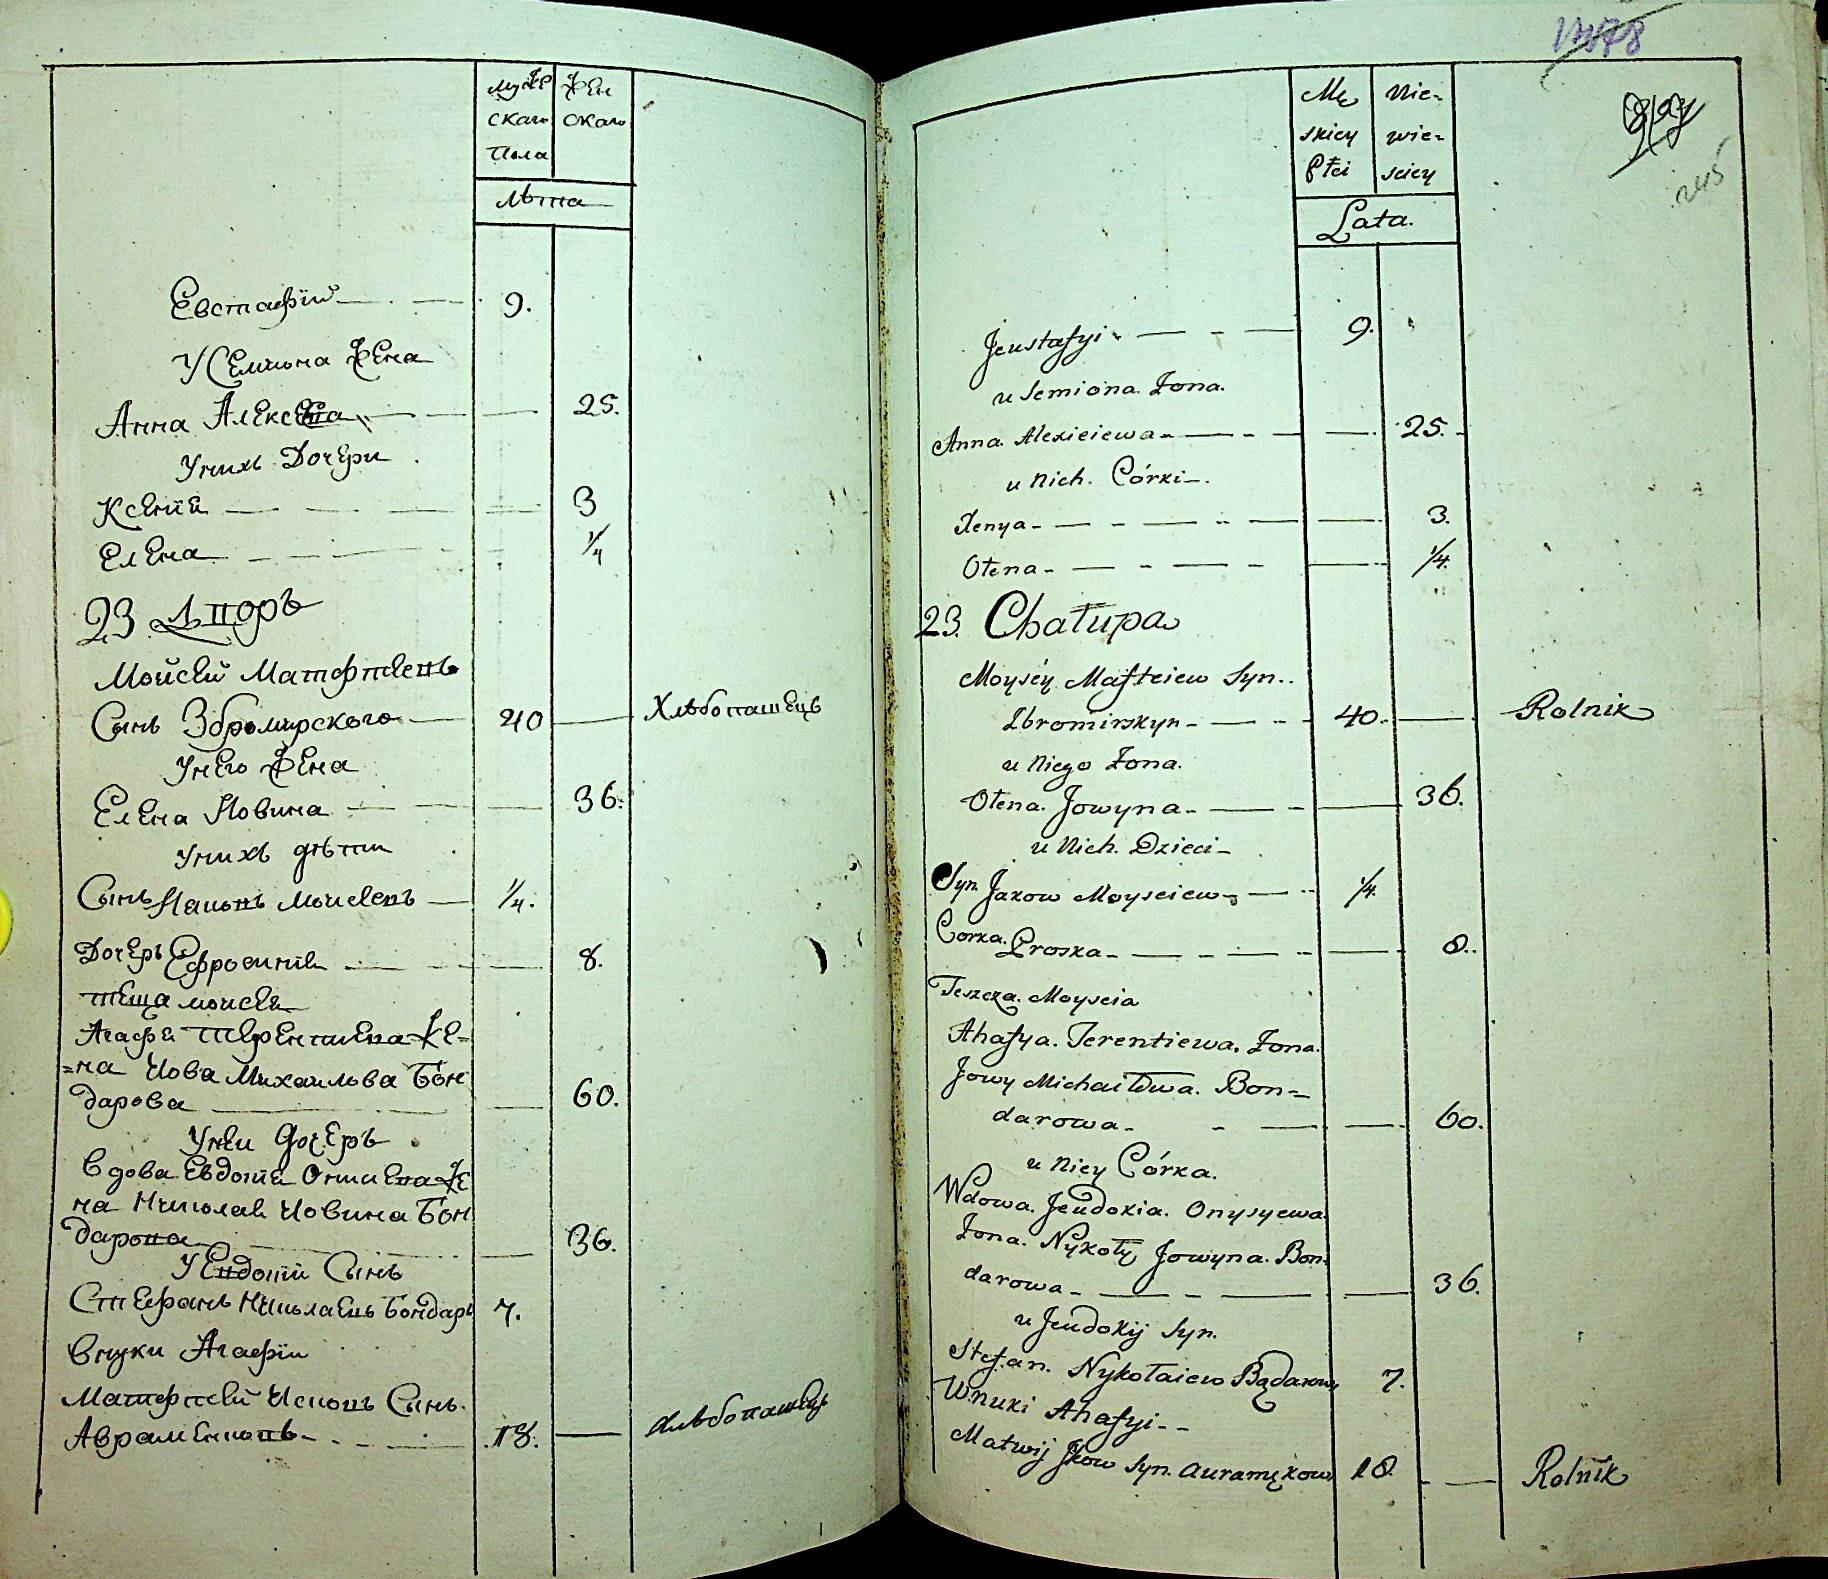 Мужескаго Пола
Женскаго
Лѣта
Евстафій 9.
У Семиона Жена
Анна Алексѣева 25.
У нихъ Дочери
Ксенія 3
Елена 1/4
23 Дворъ
Мойсей Матфѣевъ
Сынъ Збромирского 40 Хлѣбопашецъ
У него Жена
Елена Іовина 36.
У нихъ дѣти
Сынъ Іаковъ Моисеевъ 1/4.
Дочерь Ефросинія 8.
теща моисея
Агафія Терентиева Же=
=на Иова Михаилова Бон
дарова 60.
У неи дочеръ
Вдова Евдокія Онисиева Же
на Николая Иовина Бон
дарова 36.
У Евдокіи Сынъ
Стефанъ Николаевъ Бондарь 7.
Внуки Агафіи
Матфей Исковъ Сынъ
Авраменковъ 18. хлѣбопашецъ
245
Mę
skiey
Płci
Nie-
wie-
sciey
Lata.
Jeustafyi 9.
u Semiona Żona.
Anna Alexieiewa 25.
u Nich. Córki
Xenya 3.
Ołena 1/4.
23. Chałupa
Moyséy Mafteiew Syn..
Zbromirskyn 40. Rolnik
u Niego Żona.
Ołena. Jowyna 36.
u Nich. Dzieci
Syn Jakow Moyseiew 1/4.
Corka. Proska 8..
Teszcza. Moyseia
Ahafya. Terentiewa. Żona.
Jowy Michaiłowa. Bon=
darowa 60.
u Niey Córka.
Wdowa. Jeudokia. Onysyewa.
Żona. Nykoły Jowyna. Bon=
darowa 36.
u Jeudokij Syn.
Stefan. Nykołaiew Bądarow 7.
Wnuki Ahafyi
Matwij Jkow Syn. Auramękow 18 Rolnik